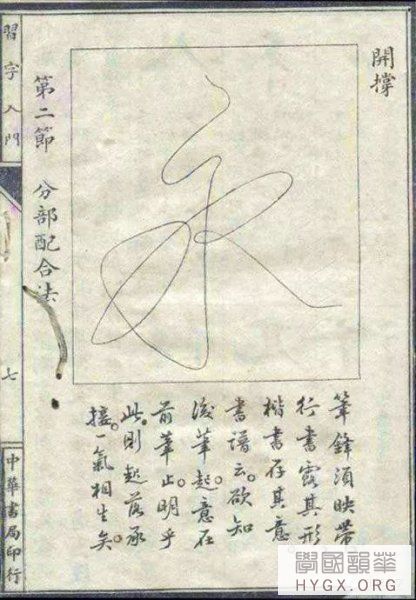 開撐
永
筆鋒須映帶
行書露其形
楷書存其意
書譜云。欲知
後筆起。意在
前筆止。明乎
此。則起落承
接。一氣相生矣。
第二節 分部配合法
習字入門
七
中華書局印行
學國韻華
HYGX.ORG